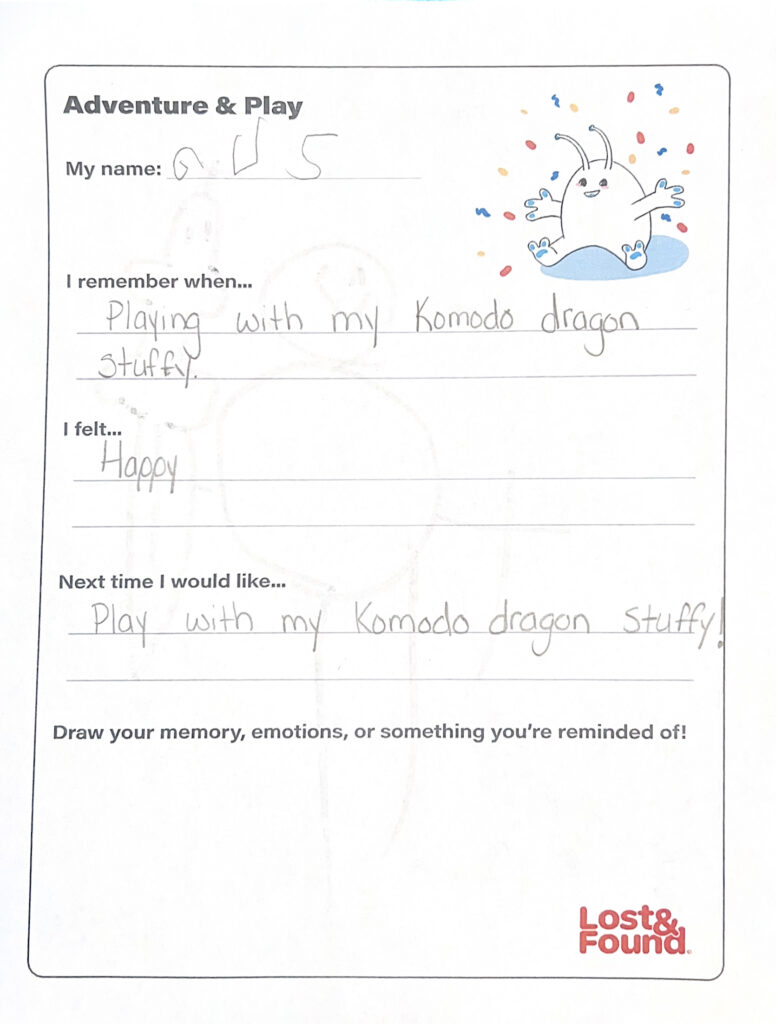 Adventure & Play
My name: GUS
I remember when...
Playing with my Komodo dragon
stuffy.
I felt...
Happy
Next time I would like...
Play with my Komodo dragon stuffy!
Draw your memory, emotions, or something you're reminded of!
Lost&
Found